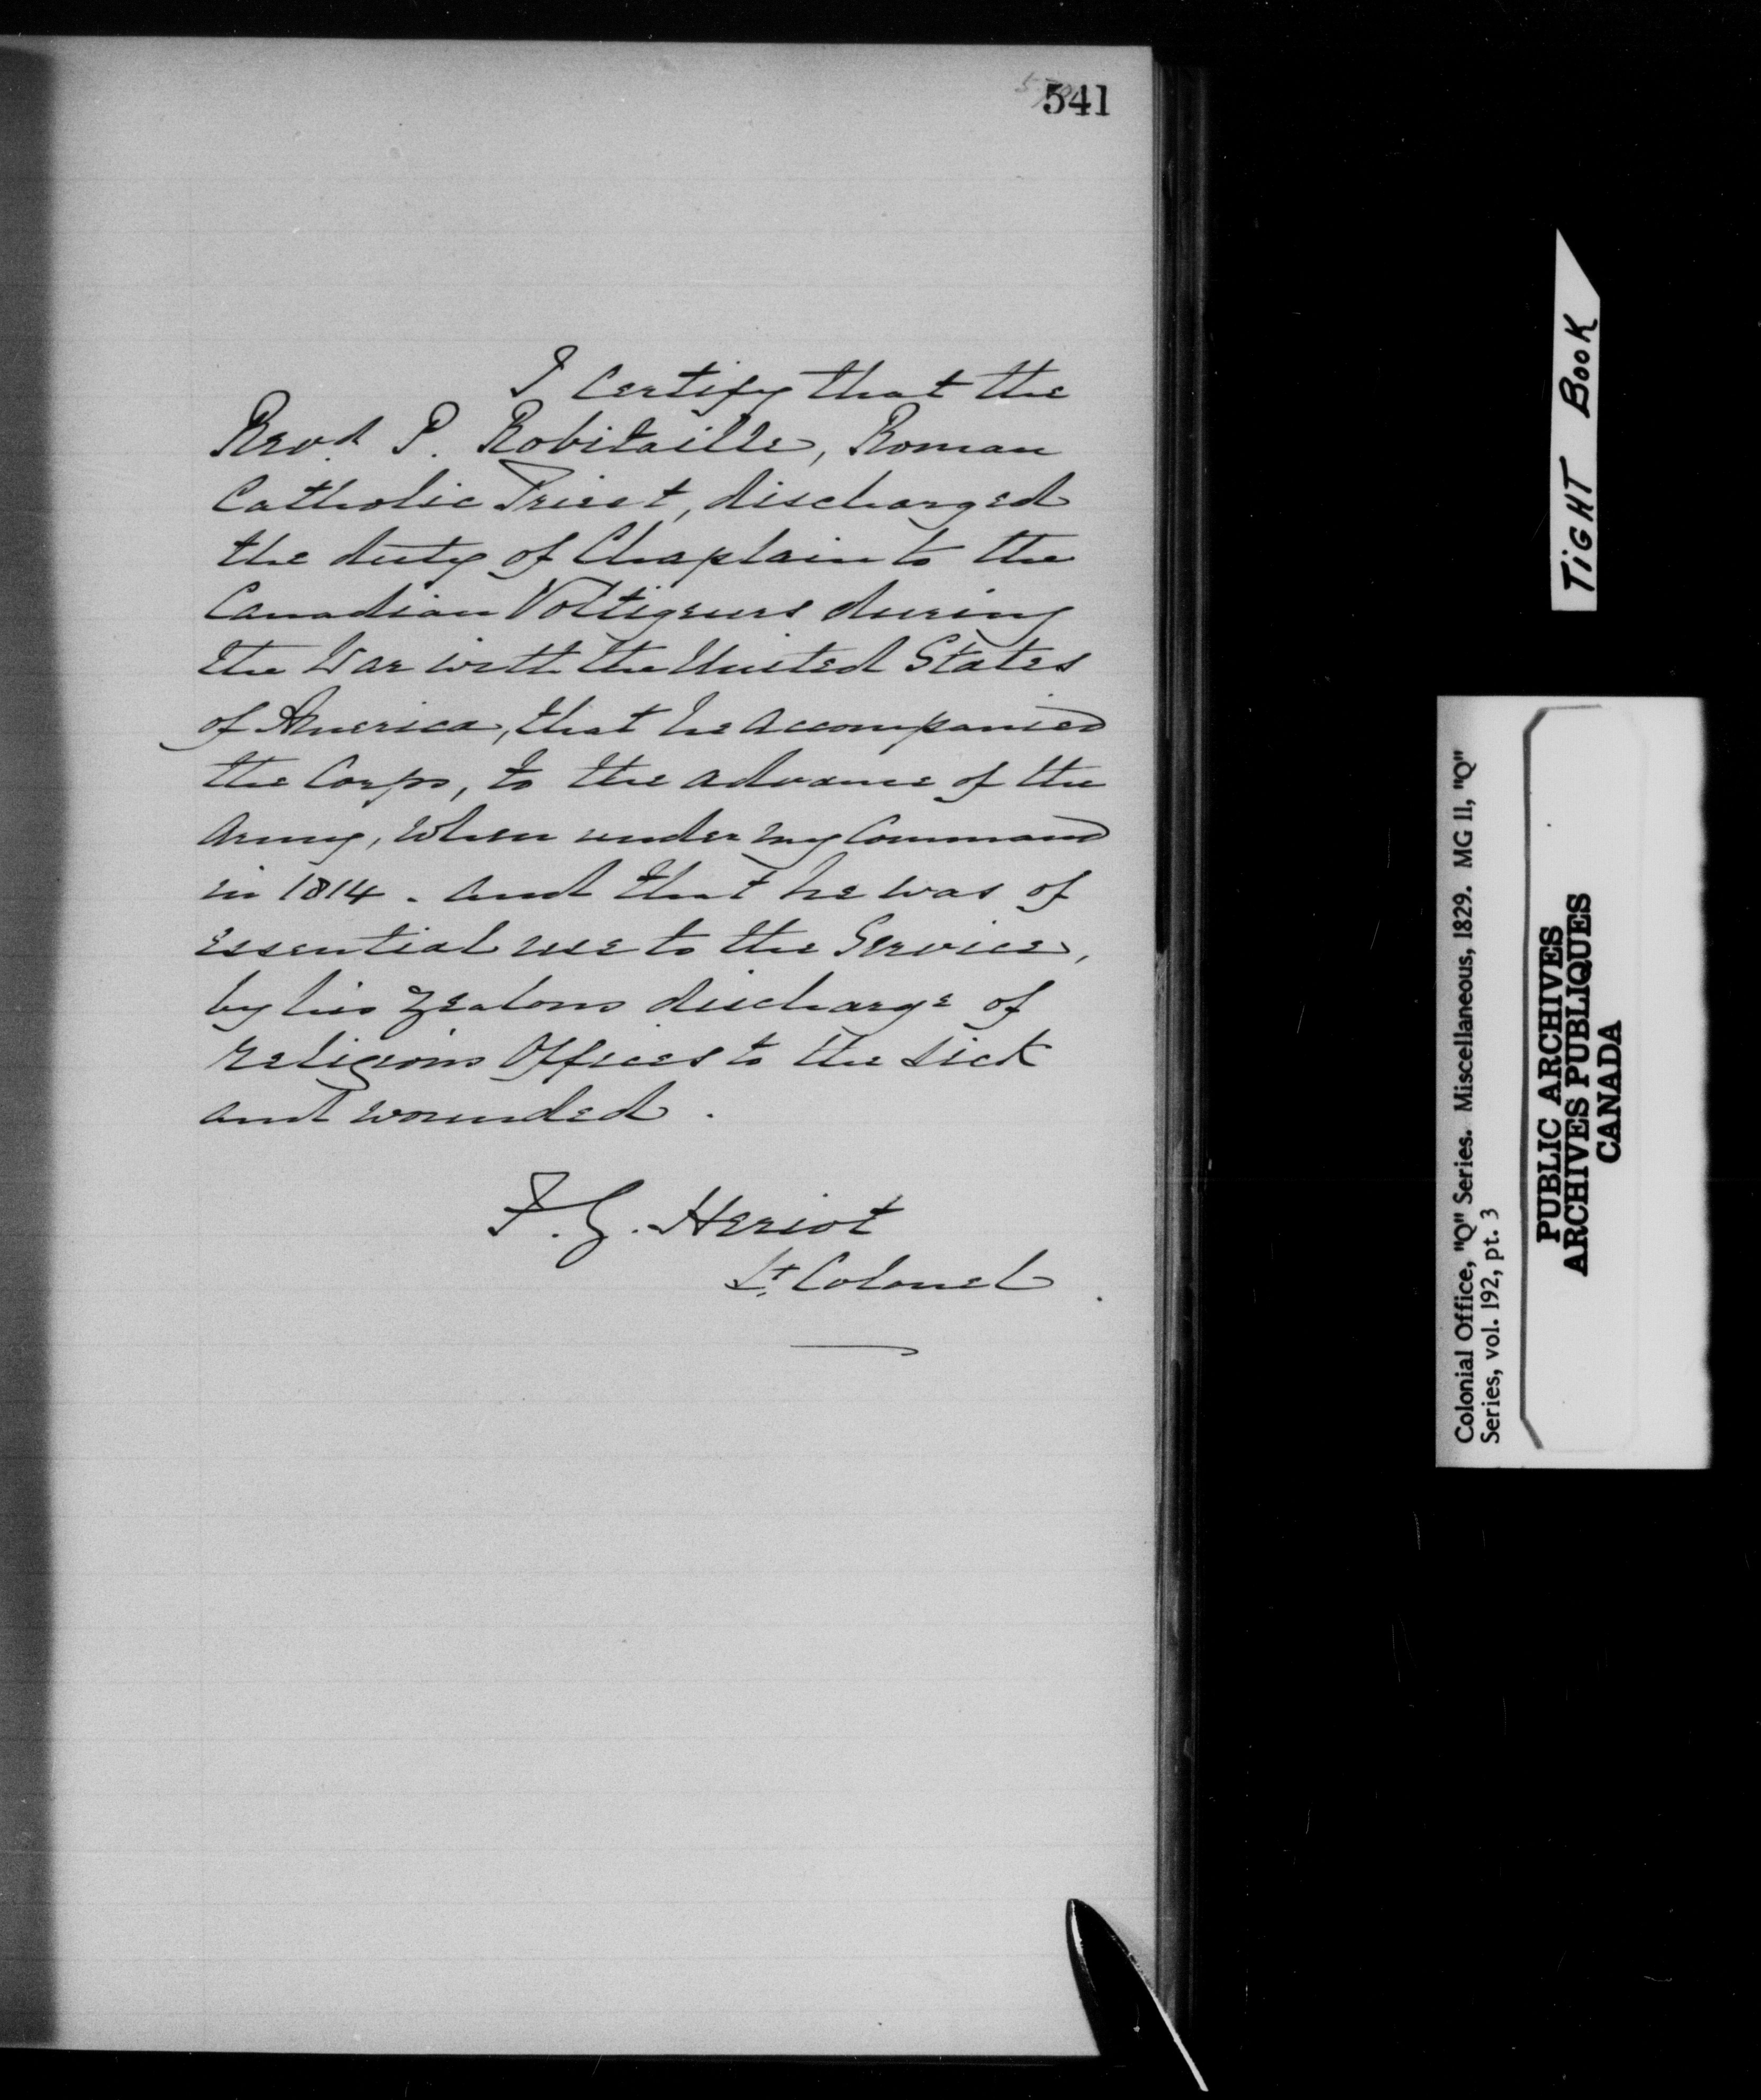 541
I Certify that the
Revd. P. Robitaille, Roman
Catholic Priest, discharged
the duty of Chaplain to the
Canadian Voltigeurs during
the War with the United States
of America, that he accompanied
the Corps, to the advance of the
Army, when under my Command
in 1814. and that he was of
essential use to the Service,
by his zealous discharge of
religious Offices to the sick
and wounded.
F. G. Heriot
Lt. Colonel.
TiGHT BOOK
Colonial Office, "Q" Series. Miscellaneous, 1829. MG 11, "Q"
Series, vol. 192, pt. 3
PUBLIC ARCHIVES
ARCHIVES PUBLIQUES
CANADA